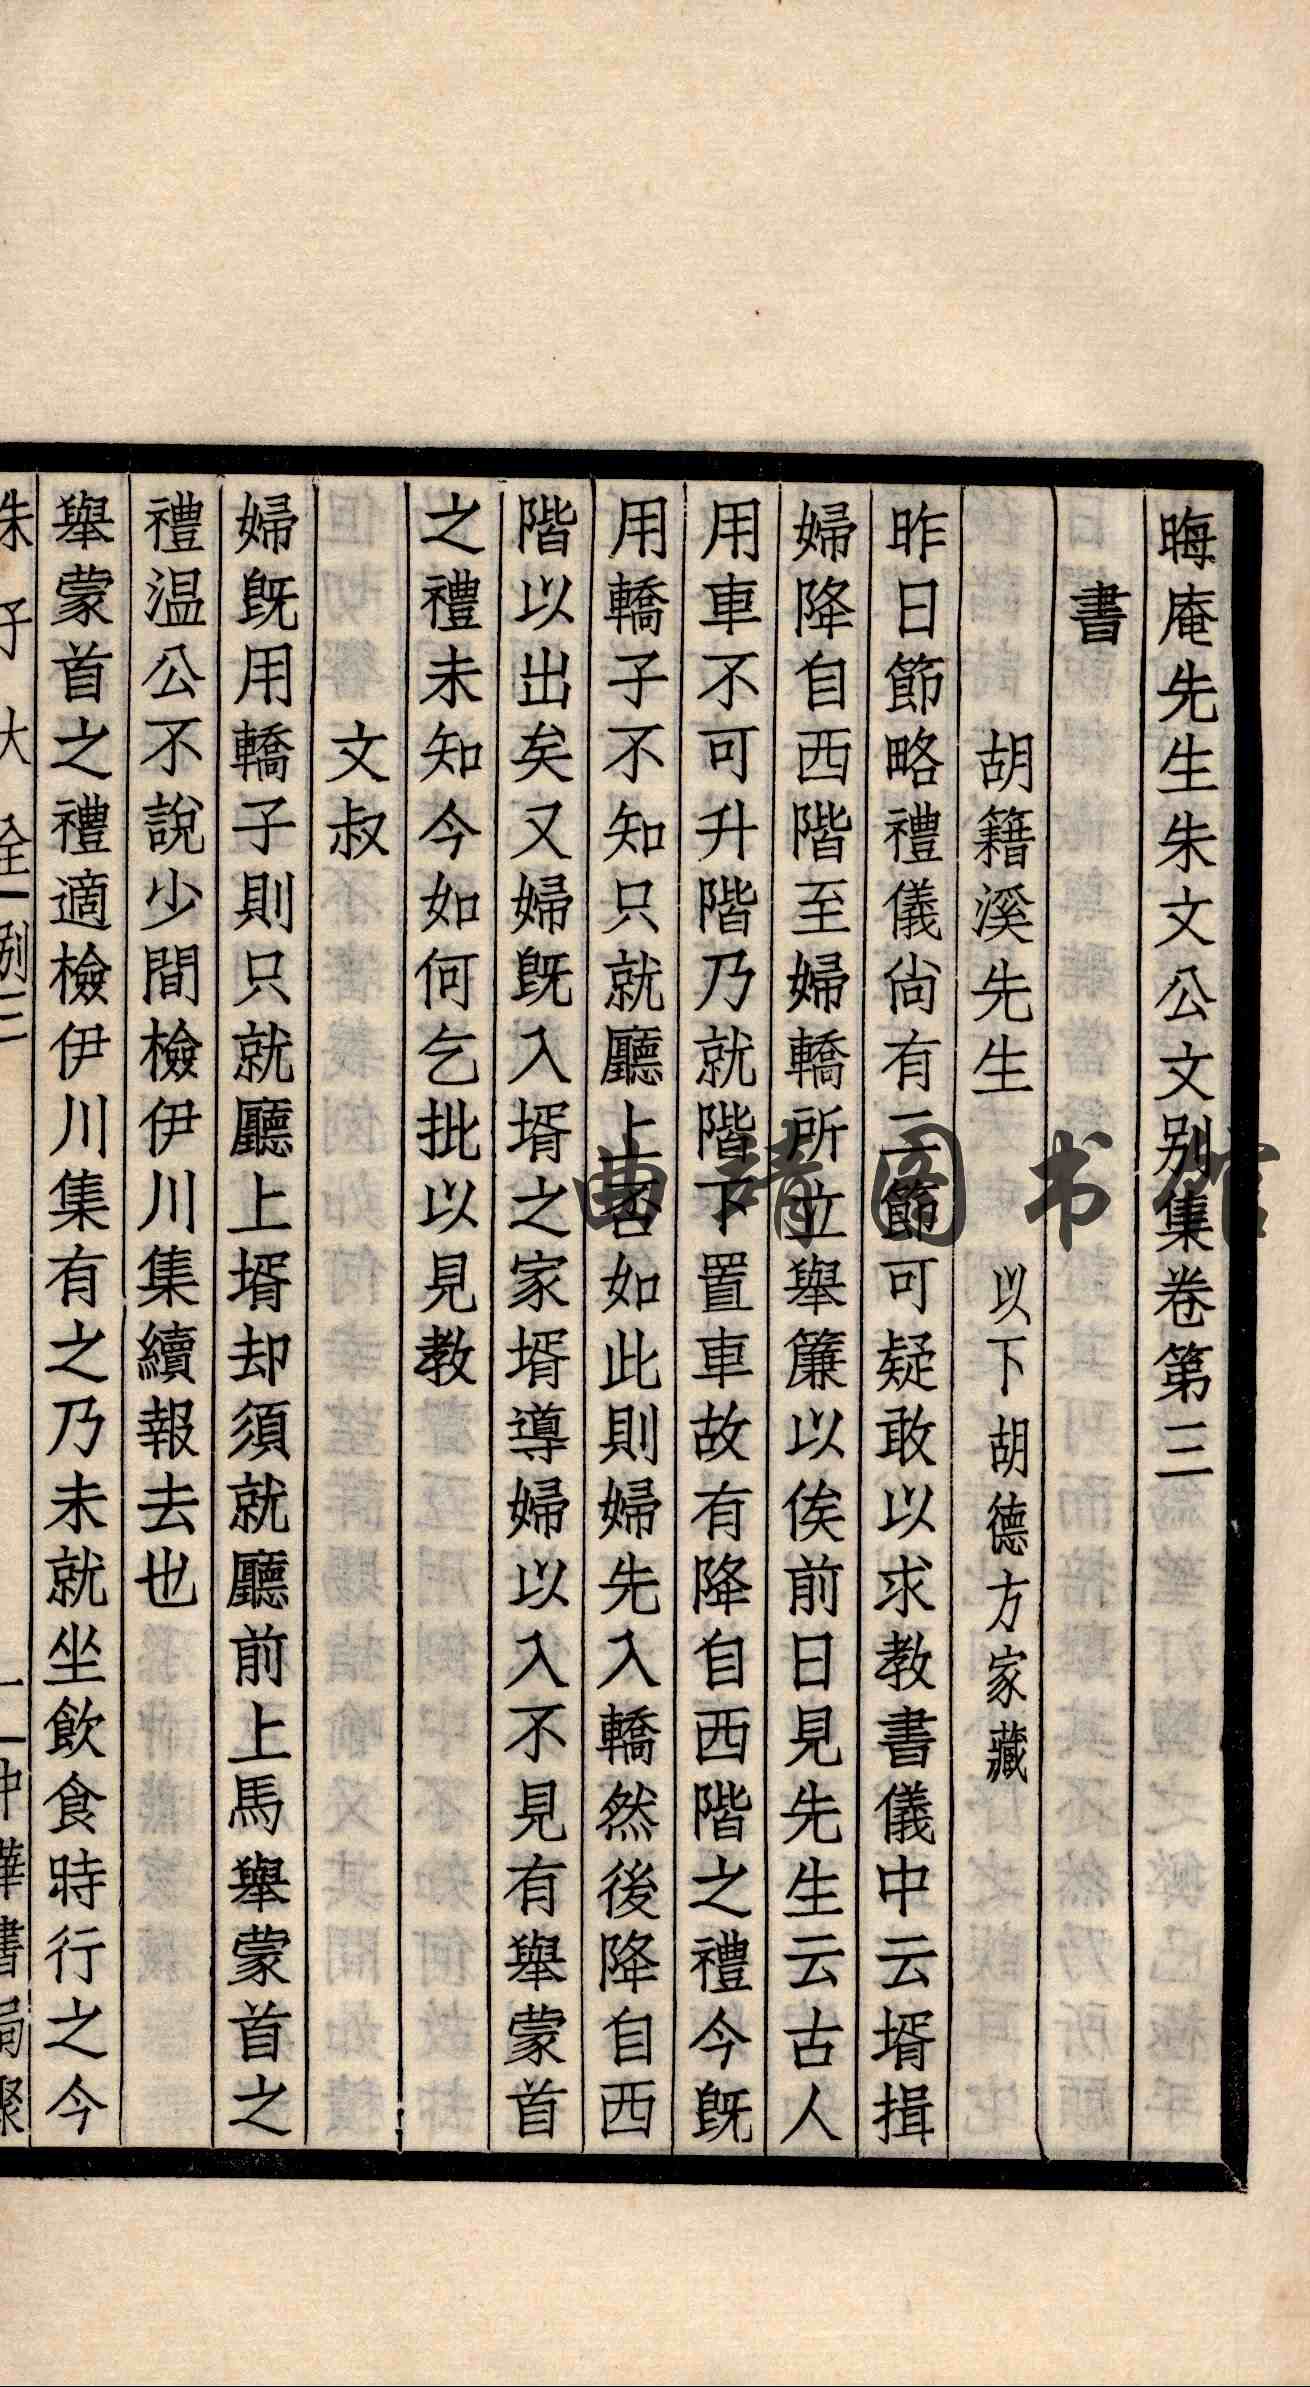 晦庵先生朱文公文别集卷第三
書
胡籍溪先生 以下胡德方家藏
昨日節略禮儀尙有二節可疑敢以求教書儀中云壻揖
婦降自西階至婦轎所立舉簾以俟前日見先生云古人
用車不可升階乃就階下置車故有降自西階之禮今旣
用轎子不知只就廳上否如此則婦先入轎然後降自西
階以出矣又婦旣入壻之家壻導婦以入不見有舉蒙首
之禮未知今如何乞批以見教
文叔
婦旣用轎子則只就廳上壻却須就廳前上馬舉蒙首之
禮温公不說少間檢伊川集續報去也
舉蒙首之禮適檢伊川集有之乃未就坐飲食時行之今
朱子大全 别三
一 中華書局聚
曲靖图书馆